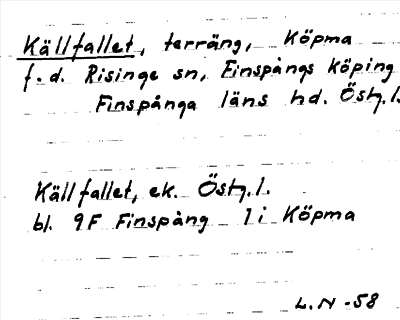 Källfallet, terräng, Köpma
f.d. Risinge sn, Finspångs köping
Finspånga läns hd. Östg.l.
Källfallet, ek. Östg.l.
bl. 9F Finspång 1i Köpma
L.N -58